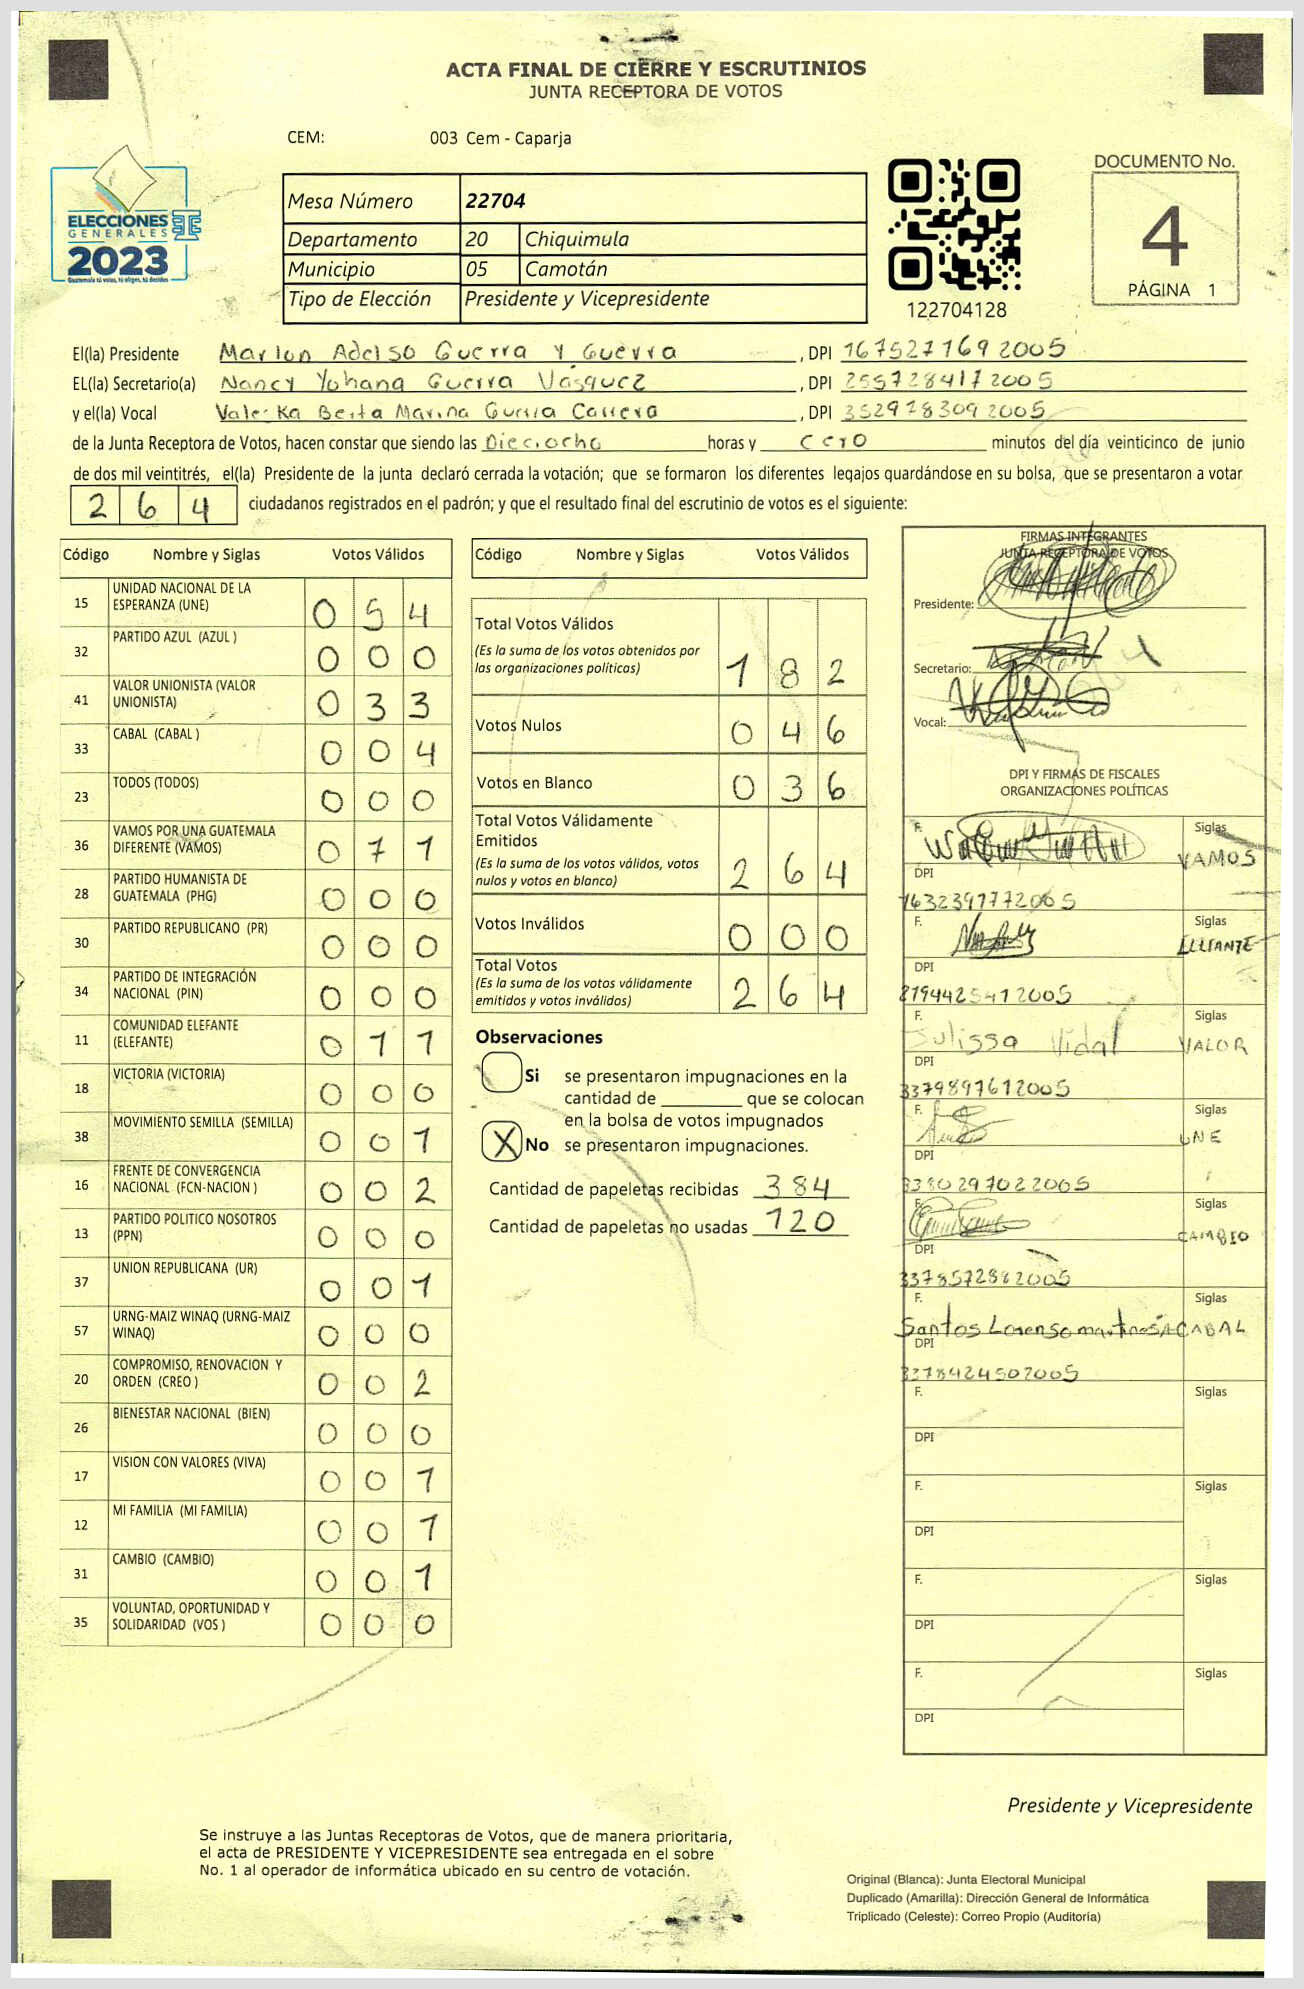 ACTA FINAL DE CIERRE Y ESCRUTINIOS
JUNTA RECEPTORA DE VOTOS
CEM: 003 Cem - Caparja
ELECCIONES
GENERALES
2023
Guatemala tú votas, tú eliges, tú decides
Mesa Número 22704
Departamento 20 Chiquimula
Municipio 05 Camotán
Tipo de Elección Presidente y Vicepresidente
122704128
DOCUMENTO No.
4
PÁGINA 1
El(la) Presidente Marlon Adelso Guerra y Guerra , DPI 1675271692005
EL(la) Secretario(a) Nancy Yohana Guerra Vásquez , DPI 2557284172005
y el(la) Vocal Valeska Berta Marina Guerra Carrera , DPI 3529783092005
de la Junta Receptora de Votos, hacen constar que siendo las Dieciocho horas y cero minutos del día veinticinco de junio
de dos mil veintitrés, el(la) Presidente de la junta declaró cerrada la votación; que se formaron los diferentes legajos guardándose en su bolsa, que se presentaron a votar
264 ciudadanos registrados en el padrón; y que el resultado final del escrutinio de votos es el siguiente:
Código Nombre y Siglas Votos Válidos
15 UNIDAD NACIONAL DE LA ESPERANZA (UNE) 054
32 PARTIDO AZUL (AZUL ) 000
41 VALOR UNIONISTA (VALOR UNIONISTA) 033
33 CABAL (CABAL ) 004
23 TODOS (TODOS) 000
36 VAMOS POR UNA GUATEMALA DIFERENTE (VAMOS) 071
28 PARTIDO HUMANISTA DE GUATEMALA (PHG) 000
30 PARTIDO REPUBLICANO (PR) 000
34 PARTIDO DE INTEGRACIÓN NACIONAL (PIN) 000
11 COMUNIDAD ELEFANTE (ELEFANTE) 011
18 VICTORIA (VICTORIA) 000
38 MOVIMIENTO SEMILLA (SEMILLA) 001
16 FRENTE DE CONVERGENCIA NACIONAL (FCN-NACION ) 002
13 PARTIDO POLITICO NOSOTROS (PPN) 000
37 UNION REPUBLICANA (UR) 001
57 URNG-MAIZ WINAQ (URNG-MAIZ WINAQ) 000
20 COMPROMISO, RENOVACION Y ORDEN (CREO ) 002
26 BIENESTAR NACIONAL (BIEN) 000
17 VISION CON VALORES (VIVA) 001
12 MI FAMILIA (MI FAMILIA) 001
31 CAMBIO (CAMBIO) 001
35 VOLUNTAD, OPORTUNIDAD Y SOLIDARIDAD (VOS ) 000
Código Nombre y Siglas Votos Válidos
Total Votos Válidos 182
(Es la suma de los votos obtenidos por
las organizaciones políticas)
Votos Nulos 046
Votos en Blanco 036
Total Votos Válidamente
Emitidos 264
(Es la suma de los votos válidos, votos
nulos y votos en blanco)
Votos Inválidos 000
Total Votos 264
(Es la suma de los votos válidamente
emitidos y votos inválidos)
Observaciones
Si se presentaron impugnaciones en la
cantidad de ________ que se colocan
en la bolsa de votos impugnados
X No se presentaron impugnaciones.
Cantidad de papeletas recibidas 384
Cantidad de papeletas no usadas 120
FIRMAS INTEGRANTES
JUNTA RECEPTORA DE VOTOS
Presidente:
Secretario:
Vocal:
DPI Y FIRMAS DE FISCALES
ORGANIZACIONES POLÍTICAS
F. Siglas VAMOS
DPI 1632397772005
F. Siglas ELEFANTE
DPI 2194425412005
F. Julissa Vidal Siglas VALOR
DPI 3379897612005
F. Siglas UNE
DPI 3380297022005
F. Siglas CAMBIO
DPI 3378572882005
F. Santos Lorenso Siglas CABAL
DPI 3378424502005
F. Siglas
DPI
F. Siglas
DPI
F. Siglas
DPI
F. Siglas
DPI
Presidente y Vicepresidente
Se instruye a las Juntas Receptoras de Votos, que de manera prioritaria,
el acta de PRESIDENTE Y VICEPRESIDENTE sea entregada en el sobre
No. 1 al operador de informática ubicado en su centro de votación.
Original (Blanca): Junta Electoral Municipal
Duplicado (Amarilla): Dirección General de Informática
Triplicado (Celeste): Correo Propio (Auditoría)